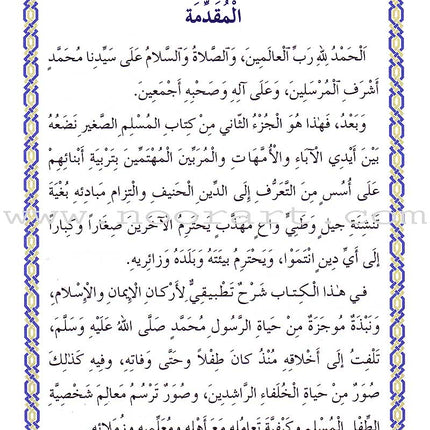 الْمُقَدِّمَة
اَلْحَمْدُ لِلهِ رَبِّ الْعالَمِينَ، وَالصَّلاةُ وَالسَّلامُ عَلَى سَيِّدِنا مُحَمَّدٍ
أَشْرَفِ الْمُرْسَلِينَ، وَعَلَى آلِهِ وَصَحْبِهِ أَجْمَعِينَ.
وَبَعْدُ، فَهٰذا هُوَ الْجُزْءُ الثّانِي مِنْ كِتابِ الْمُسْلِمِ الصَّغِيرِ نَضَعُهُ
بَيْنَ أَيْدِي الآباءِ وَالأُمَّهاتِ وَالْمُرَبِّينَ الْمُهْتَمِّينَ بِتَرْبِيَةِ أَبْنائِهِمْ
عَلَى أُسُسٍ مِنَ التَّعَرُّفِ إِلَى الدِّينِ الْحَنِيفِ وَالْتِزامِ مَبادِئِهِ بُغْيَةَ
تَنْشِئَةِ جِيلٍ وَطَنِيٍّ واعٍ مُهَذَّبٍ يَحْتَرِمُ الآخَرِينَ صِغاراً وَكِباراً
إِلَى أَيِّ دِينٍ انْتَمَوْا، وَيَحْتَرِمُ بِيئَتَهُ وَبَلَدَهُ وَزائِرِيهِ.
فِي هٰذا الْكِتابِ شَرْحٌ تَطْبِيقِيٌّ لأَرْكانِ الإِيمانِ وَالإِسْلامِ،
وَنَبْذَةٌ مُوجَزَةٌ مِنْ حَياةِ الرَّسُولِ مُحَمَّدٍ صَلَّى اللهُ عَلَيْهِ وَسَلَّمَ،
تَلْفِتُ إِلَى أَخْلاقِهِ مُنْذُ كانَ طِفْلاً وَحَتَّى وَفاتِهِ، وَفِيهِ كَذٰلِكَ
صُوَرٌ مِنْ حَياةِ الْخُلَفاءِ الرّاشِدِينَ، وَصُوَرٌ تَرْسُمُ مَعالِمَ شَخْصِيَّةِ
الطِّفْلِ الْمُسْلِمِ وَكَيْفِيَّةَ تَعامُلِهِ مَعَ أَهْلِهِ وَمُعَلِّمِيهِ وَزُمَلائِهِ
www.noorart.com